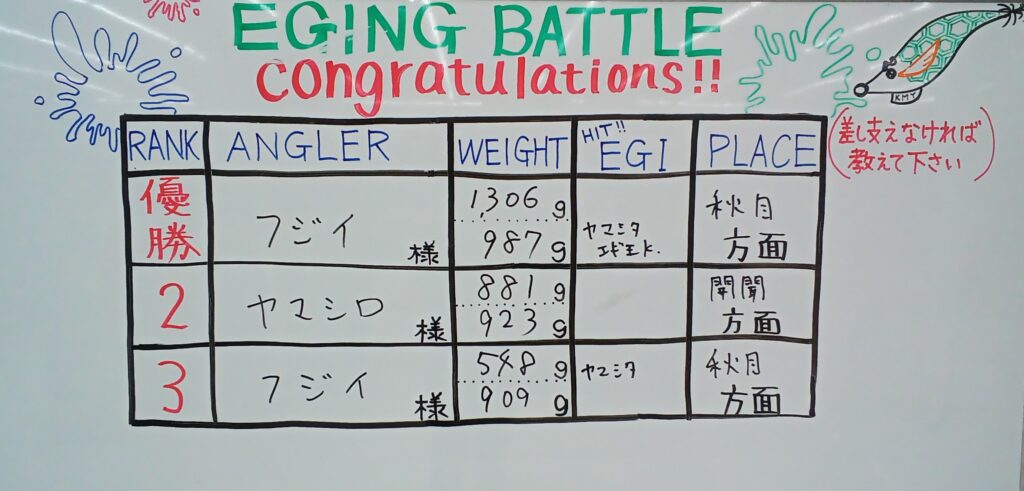 EGING BATTLE
Congratulations!!
KMY
(差し支えなければ
教えて下さい)
RANK ANGLER WEIGHT HIT!! EGI PLACE
優勝 フジイ 様 1,306 g 987 g ヤマシタ エギ王K. 秋月 方面
2 ヤマシロ 様 881 g 923 g 開聞 方面
3 フジイ 様 548 g 909 g ヤマシタ 秋月 方面